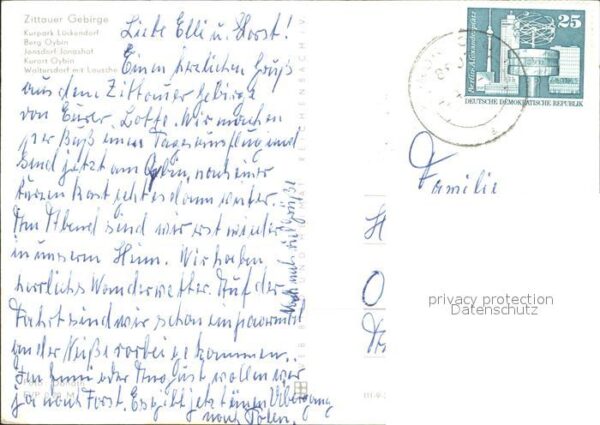 Zittauer Gebirge
Kurpark Lückendorf
Berg Oybin
Jonsdorf: Jonashof
Kurort Oybin
Waltersdorf mit Lausche
Liebe Elli u. Horst!
Einen herzlichen Gruß
aus dem Zittauer Gebirge
von Eurer Lotte. Wir machen
per Bus einen Tagesausflug und
sind jetzt am Oybin, nach einer
kurzen Rast geht es dann weiter.
Am Abend sind wir erst wieder
in unserm Heim. Wir haben
herrliches Wanderwetter. Auf der
Fahrt sind wir schon ein paarmal
an der Neiße vorbei gekommen.
Im Juni oder August wollen wir
ja nach Forst. Es gibt jetzt einen Übergang
nach Polen.
Noch mals viel Grüße
REICHENBACH I. V.
25
Berlin-Alexanderplatz
DEUTSCHE DEMOKRATISCHE REPUBLIK
Familie
H
O
privacy protection
Datenschutz